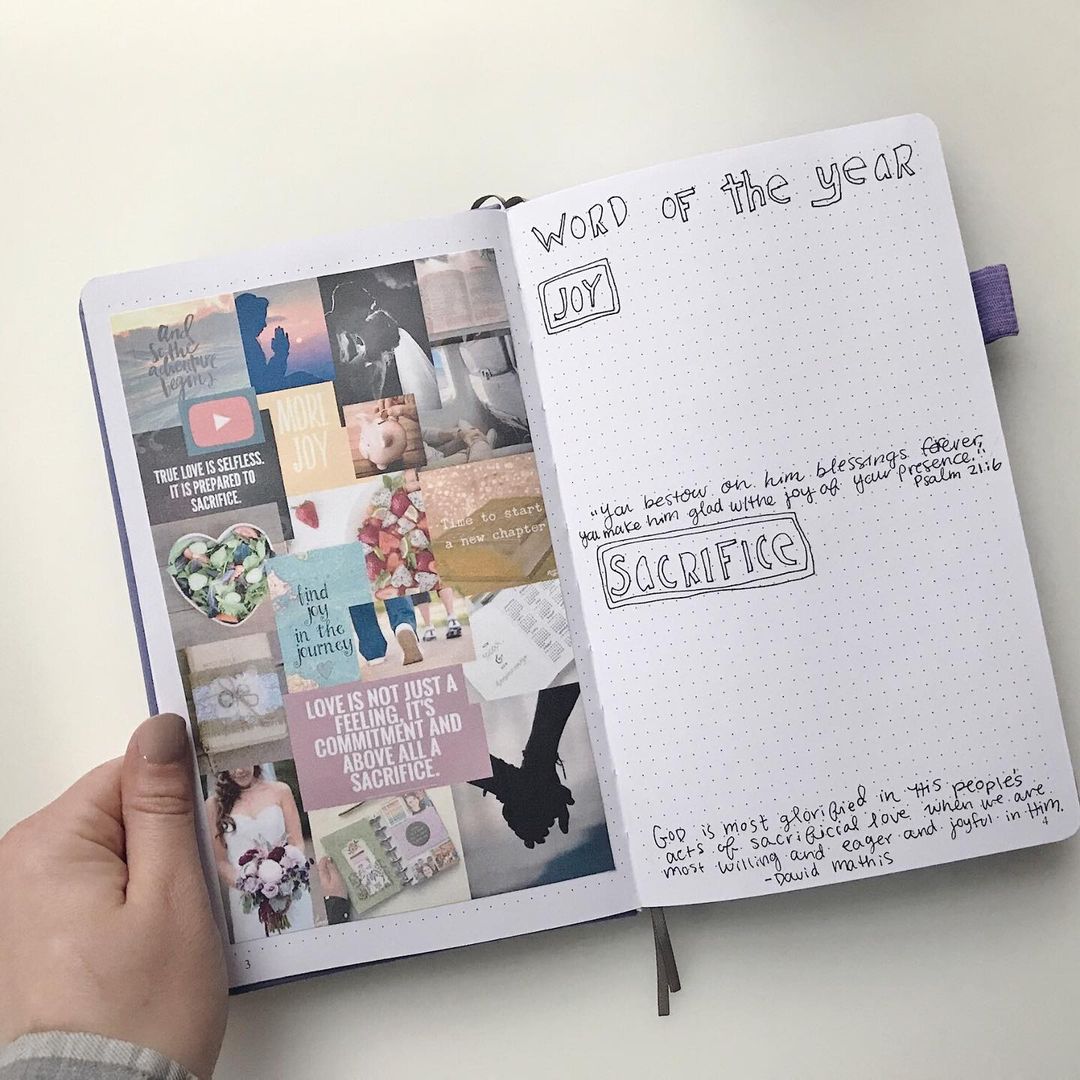 and
so the
adventure
begins
MORE
JOY
TRUE LOVE IS SELFLESS.
IT IS PREPARED TO
SACRIFICE.
Time to start
a new chapter
find
joy
in the
journey
LOVE IS NOT JUST A
FEELING, IT'S
COMMITMENT AND
ABOVE ALL A
SACRIFICE.
3
WORD OF the year
JOY
"You bestow on him blessings forever,
you make him glad w/the joy of your presence."
Psalm 21:6
SACRIFICE
God is most glorified in His people's
acts of sacrificial love when we are
most willing and eager and joyful in Him.
-David mathis